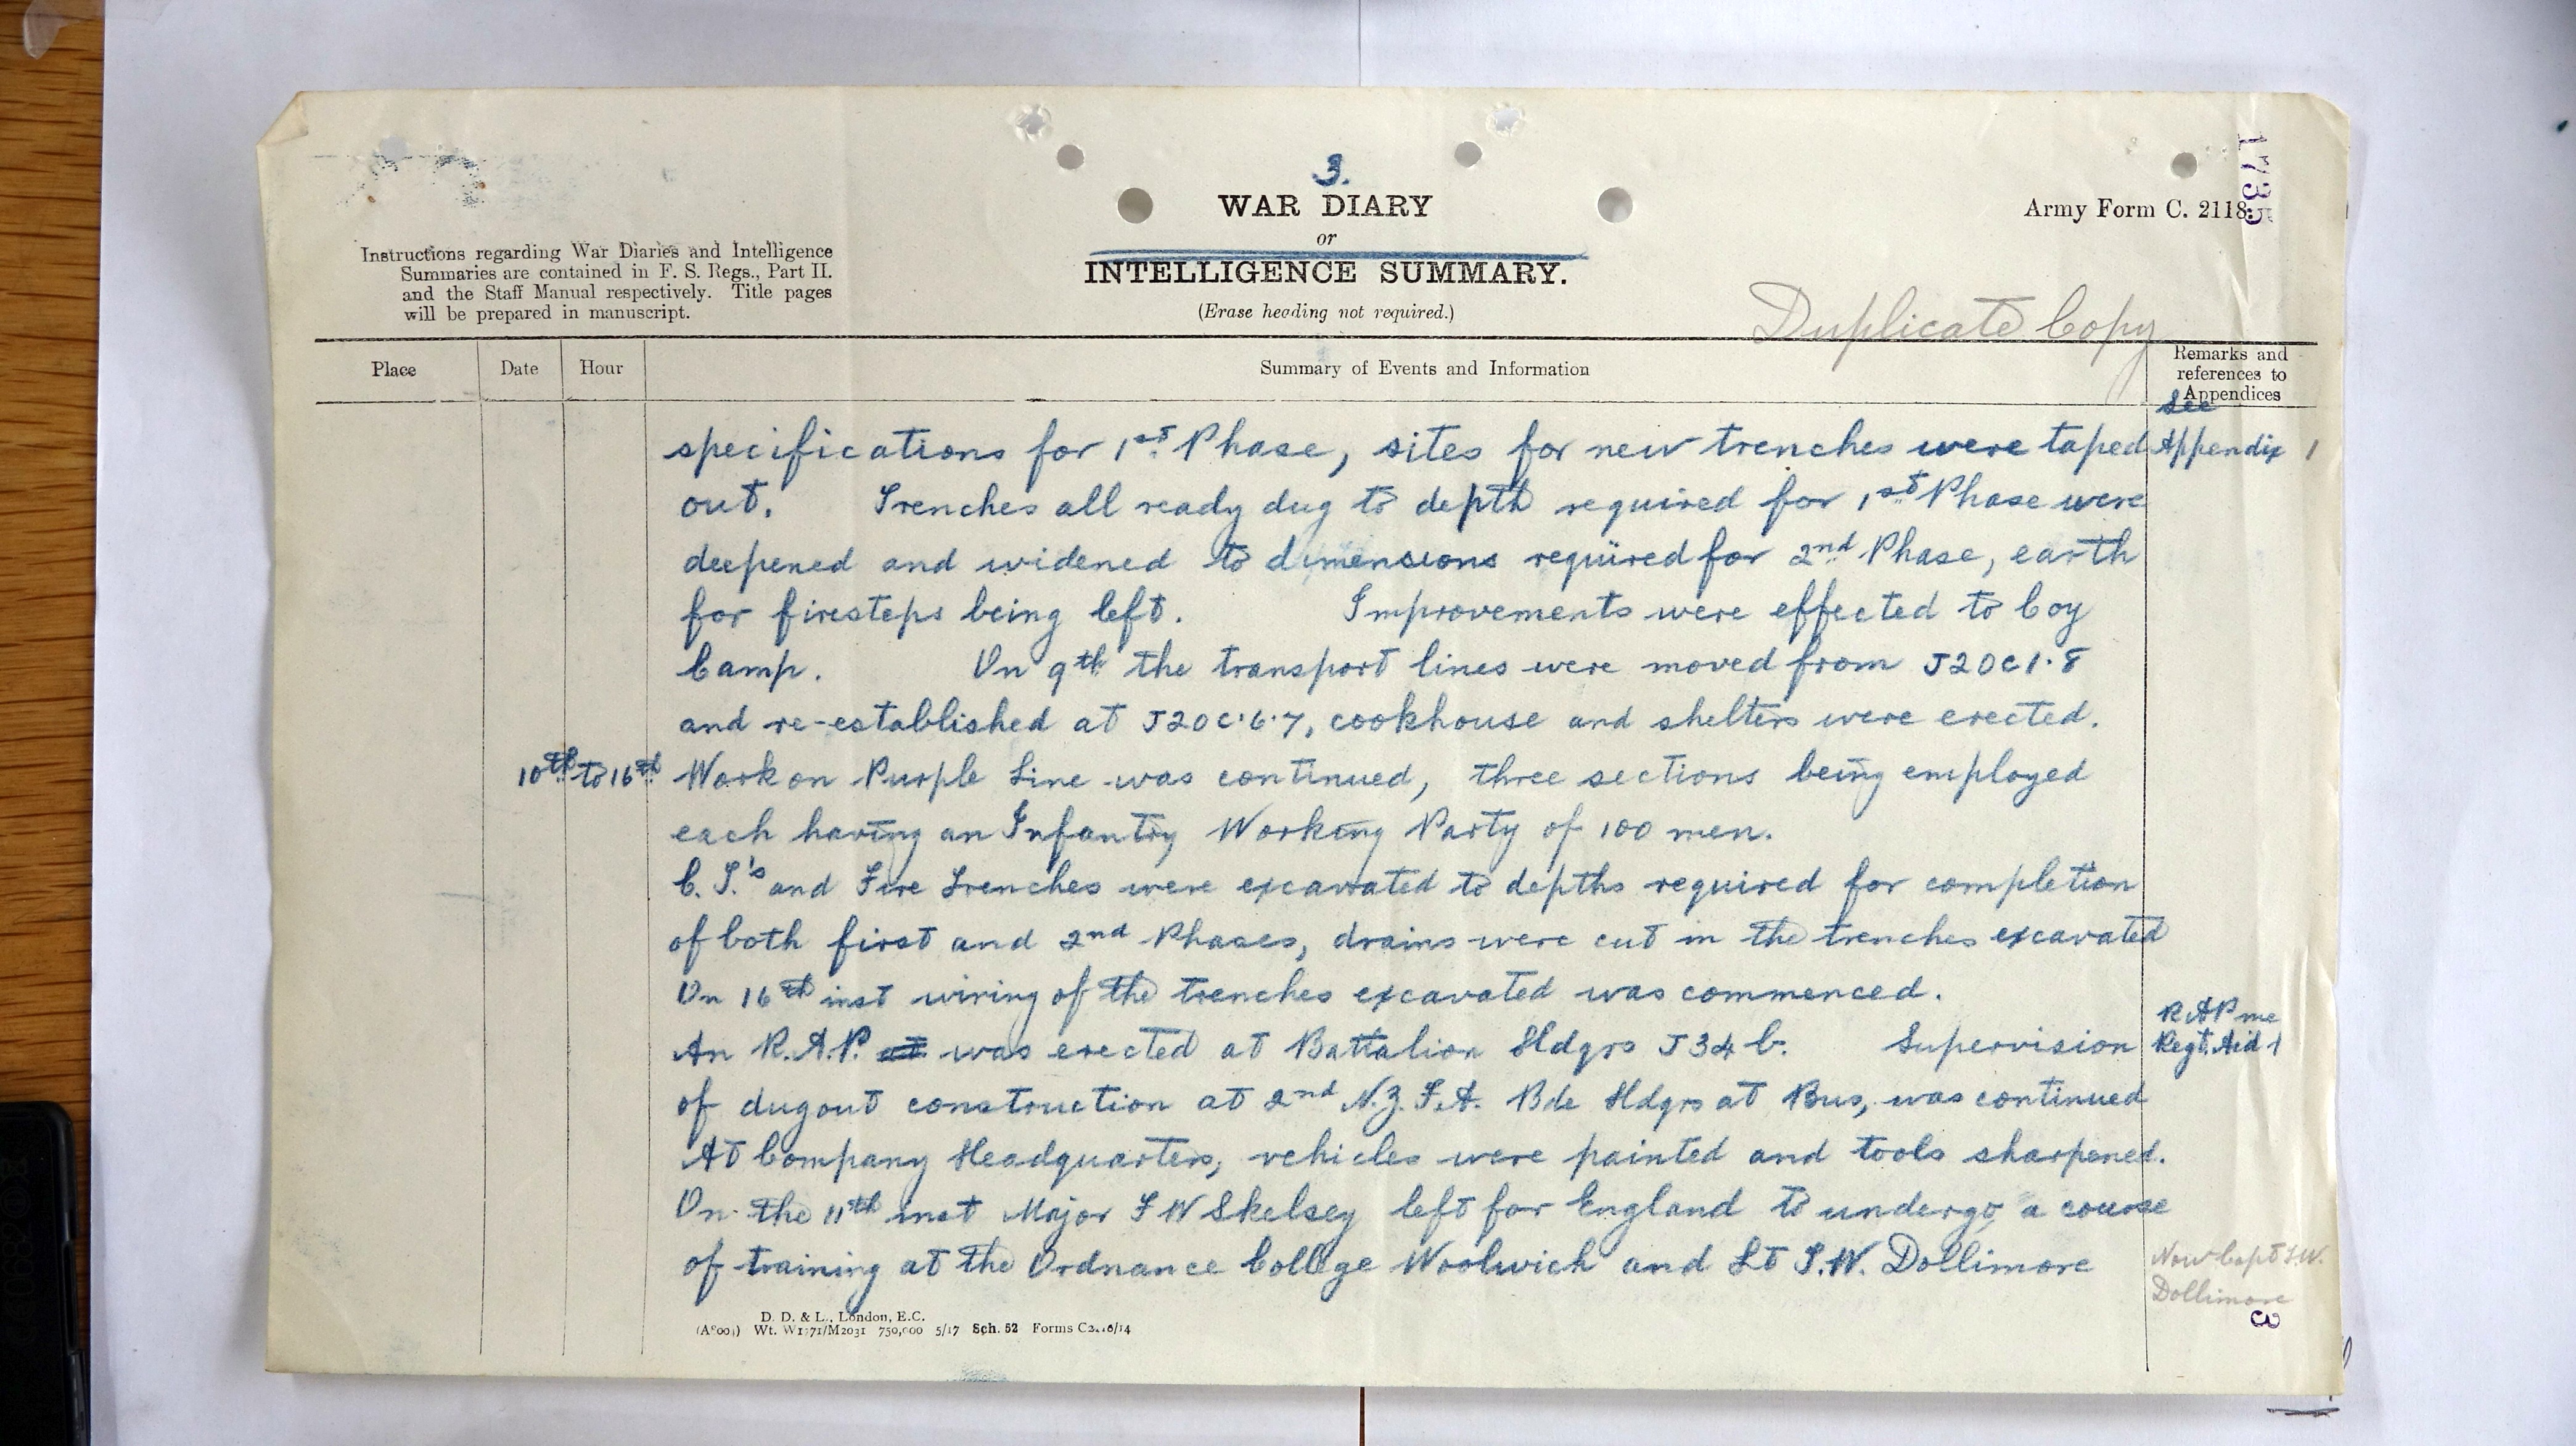 3.
WAR DIARY
or
INTELLIGENCE SUMMARY.
(Erase heading not required.)
Army Form C. 2118.
1735
Instructions regarding War Diaries and Intelligence
Summaries are contained in F. S. Regs., Part II.
and the Staff Manual respectively. Title pages
will be prepared in manuscript.
Duplicate Copy
Place Date Hour Summary of Events and Information Remarks and
references to
Appendices
See
specifications for 1st Phase, sites for new trenches were taped Appendix 1
out. Trenches all ready dug to depth required for 1st Phase were
deepened and widened to dimensions required for 2nd Phase, earth
for firesteps being left. Improvements were effected to Coy
Camp. On 9th the transport lines were moved from J20C1.8
and re-established at J20C.6.7, cookhouse and shelters were erected.
10th to 16th Work on Purple Line was continued, three sections being employed
each having an Infantry Working Party of 100 men.
C.T.'s and Fire Trenches were excavated to depths required for completion
of both first and 2nd Phases, drains were cut in the trenches excavated
On 16th inst wiring of the trenches excavated was commenced.
R.A.P me
An R.A.P. was erected at Battalion Hdqrs J34b. Supervision Regt. Aid
of dugout construction at 2nd N.Z.F.A. Bde Hdqrs at Bus, was continued
At Company Headquarters, vehicles were painted and tools sharpened.
On the 11th inst Major F W Skelsey left for England to undergo a course
of training at the Ordnance College Woolwich and Lt S.W. Dollimore
Now Capt S.W.
Dollimore
3
D. D. & L., London, E.C.
Wt. W1771/M2031 750,000 5/17 Sch. 52 Forms C2118/14